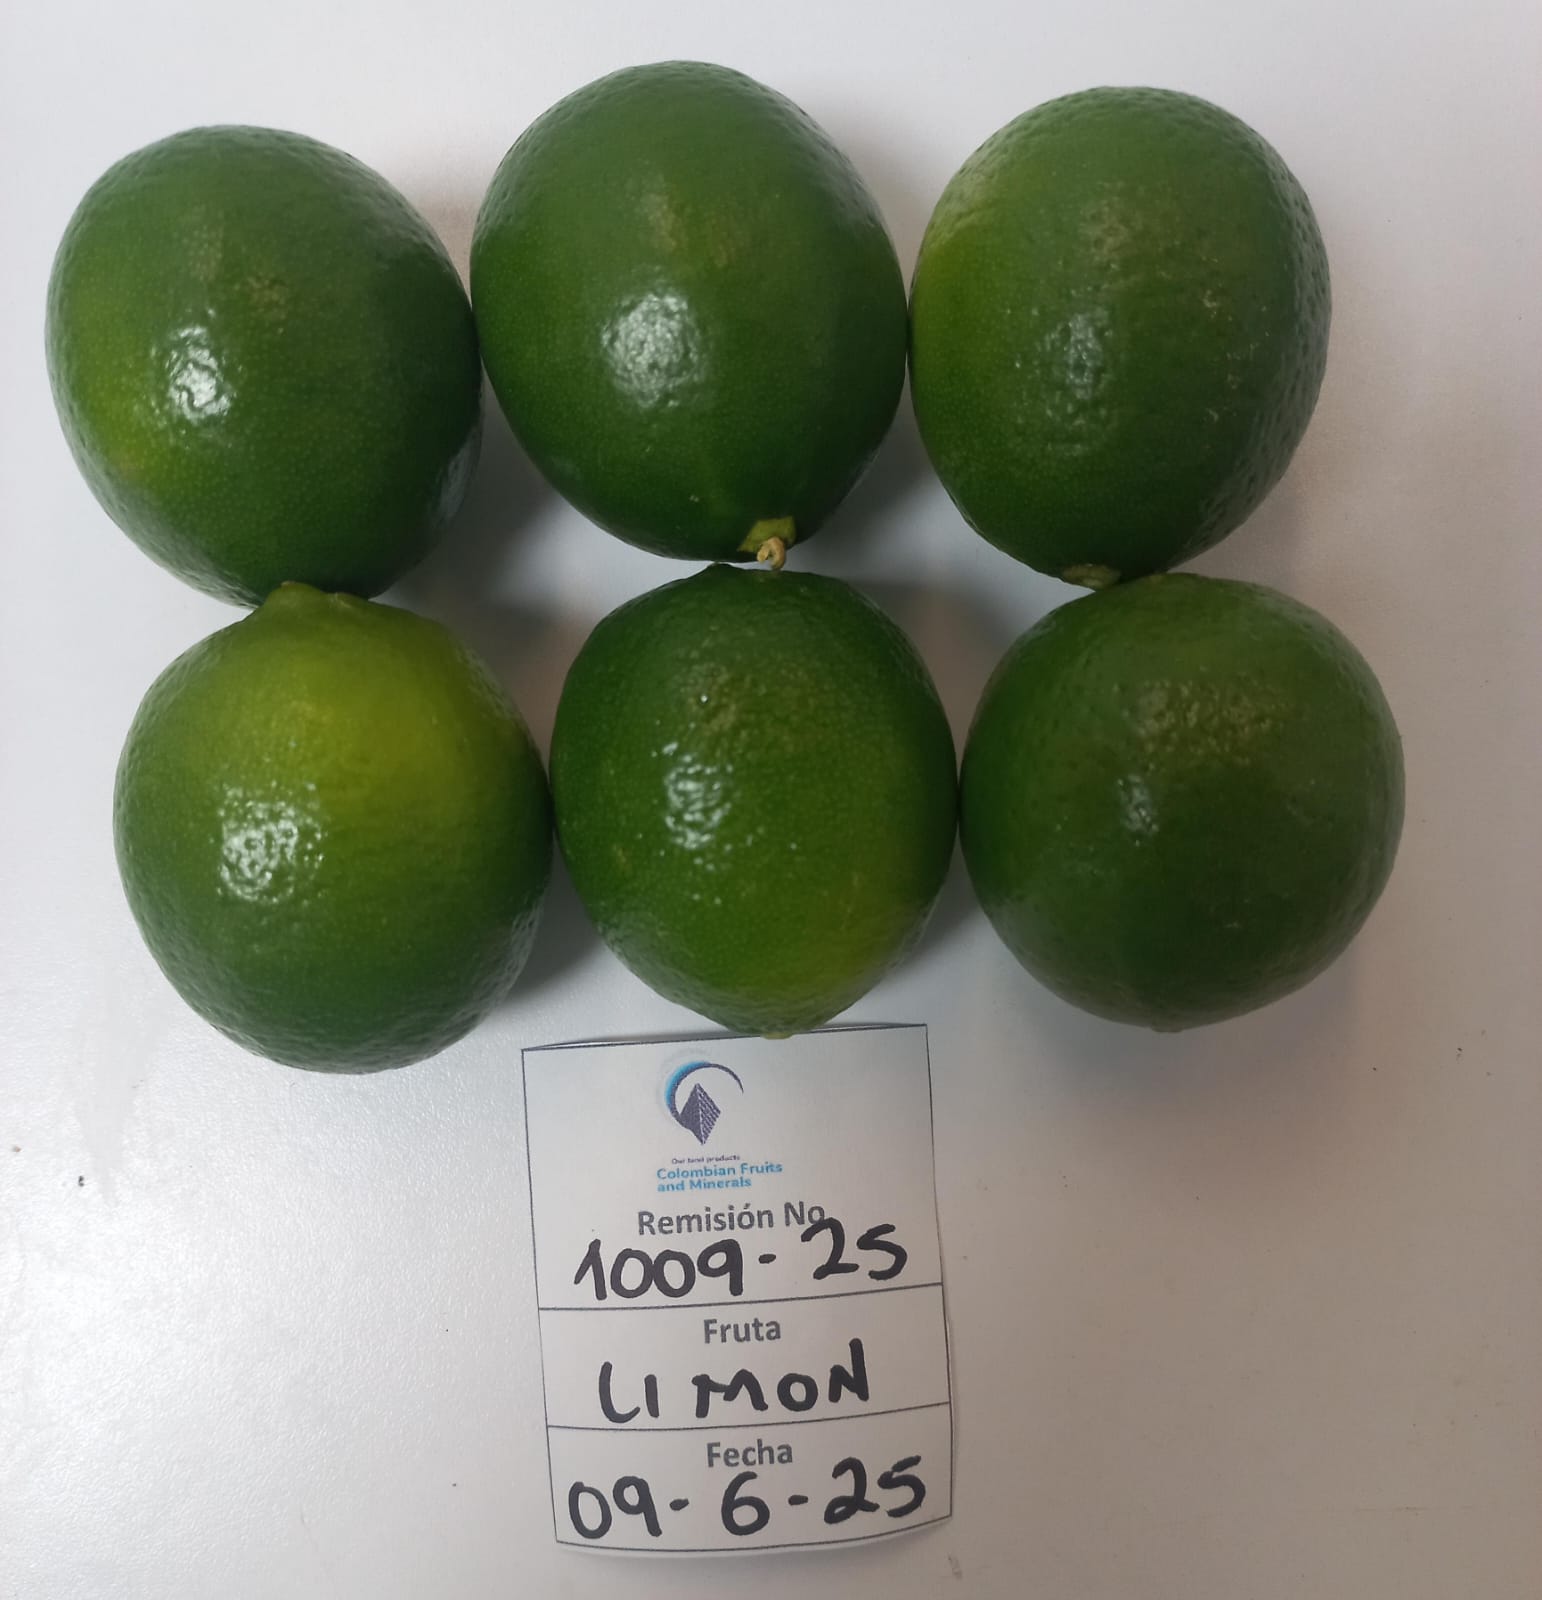 Our land products
Colombian Fruits
and Minerals
Remisión No
1009-25
Fruta
LIMON
Fecha
09-6-25